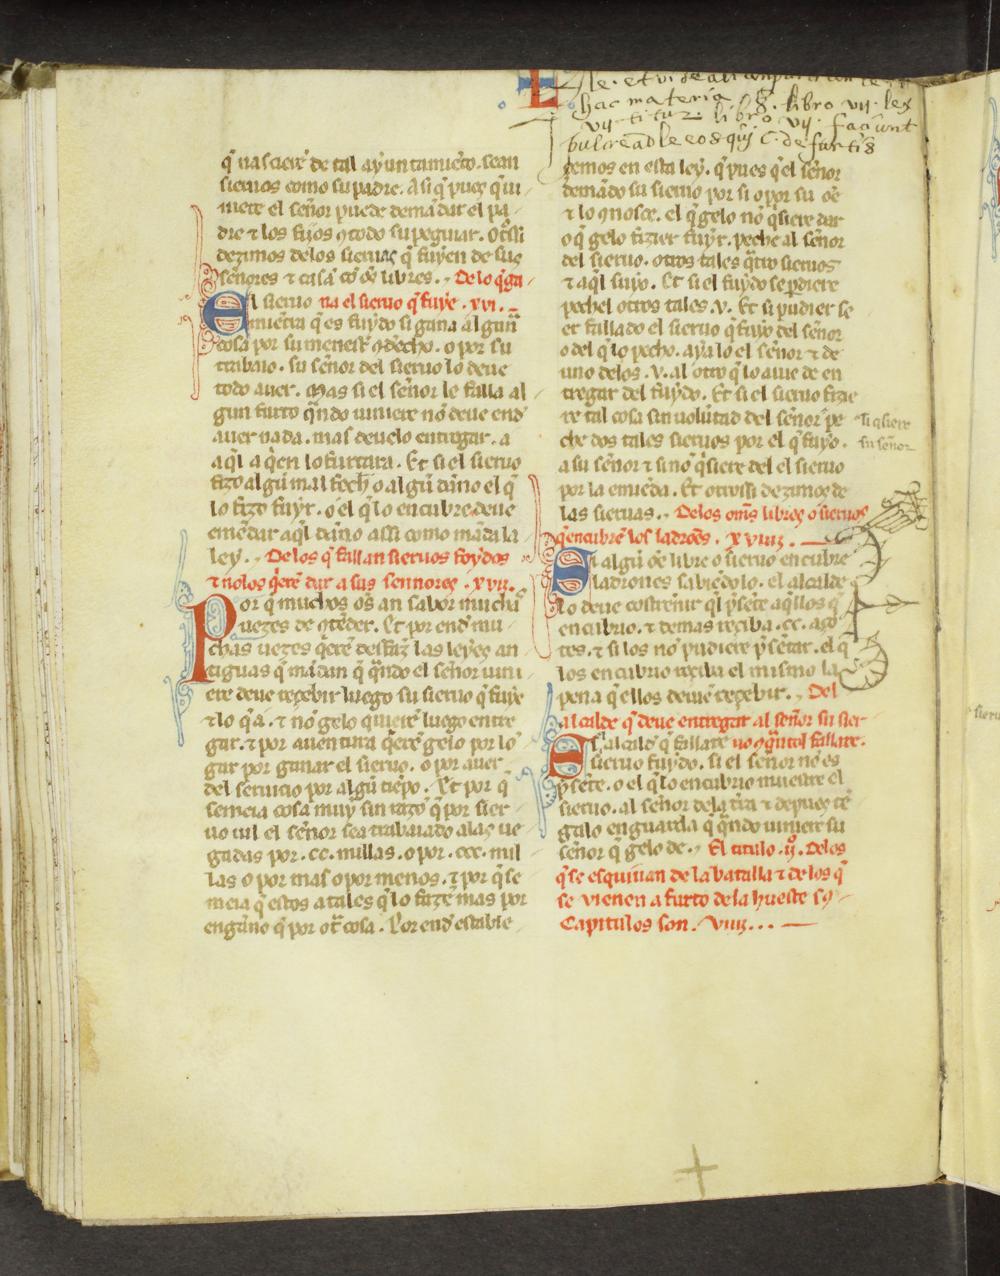 L
le. et vide
hac materia .S. libro vij. lex
vij. titu. libro vij. faciunt
C. de furtis
q̃ nasciere de tal ayuntamiẽto. sean
sieruos como su padre. Asi q̃ pues q̃ ui
niere el señor puede demãdar el pa
dre ⁊ los fijos ⁊ todo su peguiar. Otssi
dezimos delos sieruas q̃ fuyen de sus
señores ⁊ casã cõ oẽs libres. De lo q̃ ga
El sieruo na el sieruo q̃ fuye. xvi.
muestra q̃ es fuydo si gana algun
cosa por su menestr̃ o por su
trabaio. su señor del sieruo lo deue
todo auer. Mas si el señor le falla al
gun furto q̃ndo uiniere nõ deue end
auer nada. mas deuelo entregar. a
aq̃l a q̃en lo furtara. Et si el sieruo
fizo algũ mal fech̃ o algũ dãno el q̃
lo fizo fuyr. o el q̃ lo encubre deue
emẽdar aq̃l dãno assi como mãda la
ley. De los q̃ fallan sieruos foydos
⁊ nõ los q̃erẽ dar a sus sennores. xvii.
Por q̃ muchos oẽs an sabor muchã
uezes de cõtẽder. Et por end mu
chas uezes q̃erẽ desfaz̃ las leyes an
tiguas q̃ mãdan q̃ q̃ndo el señor uini
ere deue reçebir luego su sieruo q̃ fuye
⁊ lo q̃ a. ⁊ nõ gelo quierẽ luego entre
gar. ⁊ por auentura q̃erẽ gelo por lo
gar por ganar el sieruo. o por auer
del seruicio por algũ tiẽpo. Et por q̃
semeia cosa muy sin razõ q̃ por sier
uo uil el señor sea trabaiado a las ue
gadas por .cc. millas. o por .ccc. mil
las o por mas o por menos. ⁊ por q̃ se
meia q̃ estos atales q̃ lo fazẽ mas por
engãno q̃ por ot̃ cosa. Por end estable
çemos en esta ley. q̃ pues q̃ el señor
demãdo su sieruo por si o por su oẽ
⁊ lo cõnosçe. el q̃ gelo nõ q̃siere dar
o q̃ gelo fizier fuyr. peche al señor
del sieruo. otros tales q̃tro sieruos
⁊ aq̃l suyo. Et si el fuydo se perdiere
pechel otros tales .v. Et si pudier se
er fallado el sieruo q̃ fuyo del señor
o del q̃ lo pecho. aya lo el señor ⁊ de
uno delos .v. al otro q̃ lo auie de en
tregar del fuydo. Et si el sieruo fizie
re tal cosa sin volũtad del señor pe
che dos tales sieruos por el q̃ fuyo.
si q̃siere
su señor
a su señor ⁊ si nõ q̃siere del el sieruo
por la emiẽda. Et otrossi dezimos de
las sieruas. Delos oms̃ libres o sieruos
q̃ encubrẽ los ladrões. xviii.
Si algũ oẽ libre o sieruo encubre
ladrones sabiẽdolo. el alcalde
lo deue costreñir q̃ l p̃sẽte aq̃llos q̃
encubrio. ⁊ demas reçiba .cc. aço
tes. ⁊ si los nõ pudiere p̃sẽtar. el q̃
los encubrio reçiba el mismo la
pena q̃ ellos deuiẽ reçebir. Del
alcalde q̃ deue entregar al señor su sier
Si alcald̃ q̃ fallare uo cõ q̃ntol fallare.
sieruo fuydo. si el señor nõ es
p̃sẽte. o el q̃ lo encubrio muestre el
sieruo. al señor dela tr̃ra ⁊ depues tẽ
galo en guarda q̃ q̃ndo uiniere su
señor q̃ gelo de. El titulo .ij. Delos
q̃ se esquiuan de la batalla ⁊ de los q̃
se vienen a furto dela hueste
Capitulos son. viiij...